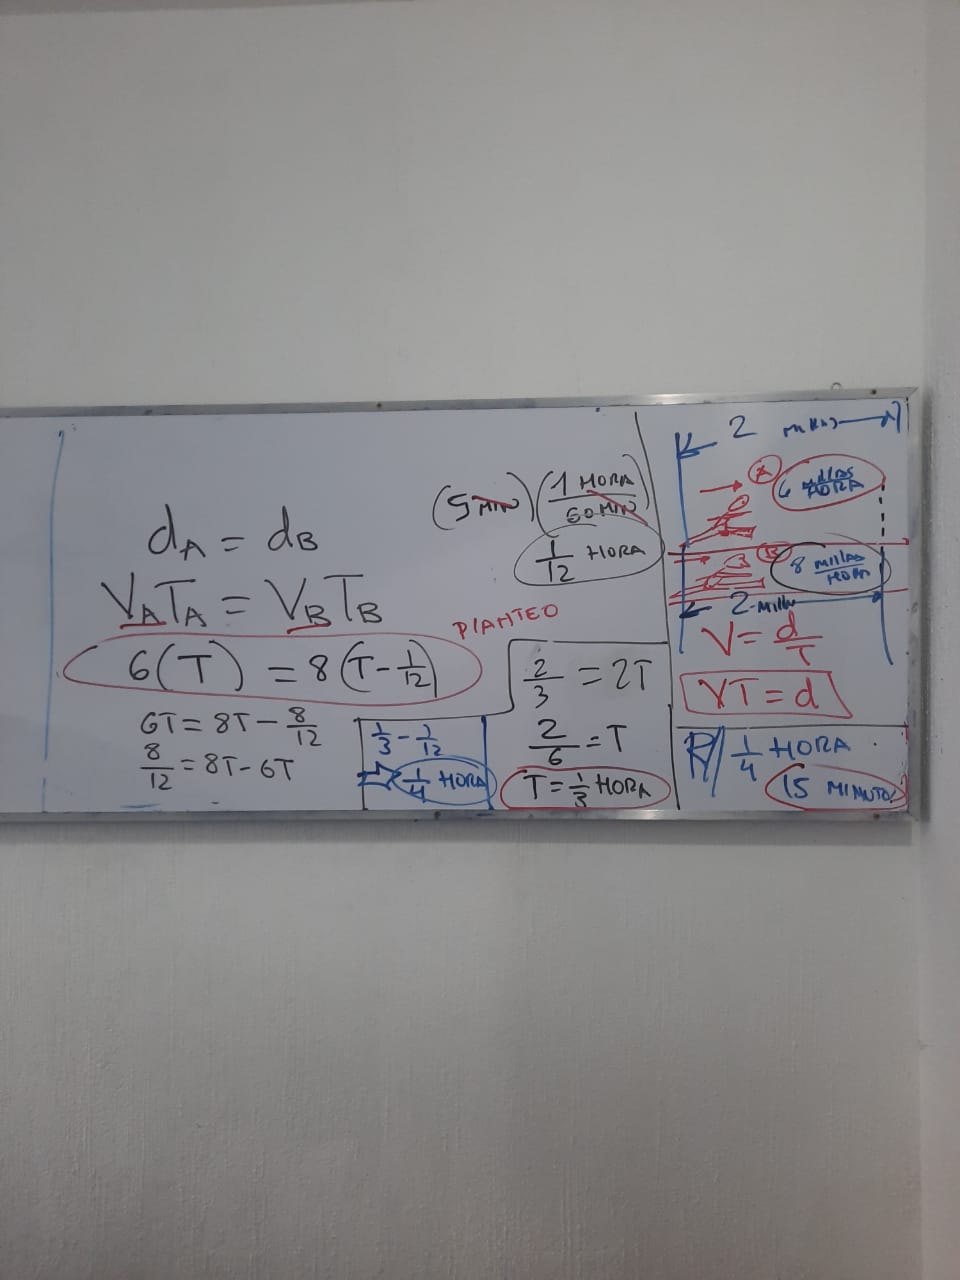 dA = dB
VATA = VBTB
6(T) = 8(T - 1/12)
PLANTEO
6T = 8T - 8/12
8/12 = 8T - 6T
(5 MIN)(1 HORA/60 MIN)
1/12 HORA
2/3 = 2T
2/6 = T
T = 1/3 HORA
1/3 - 1/12
1/4 HORA
2 MILLAS
A 6 MILLAS/HORA
B 8 MILLAS/HORA
2 MILLAS
V = d/T
VT = d
R/ 1/4 HORA
15 MINUTOS